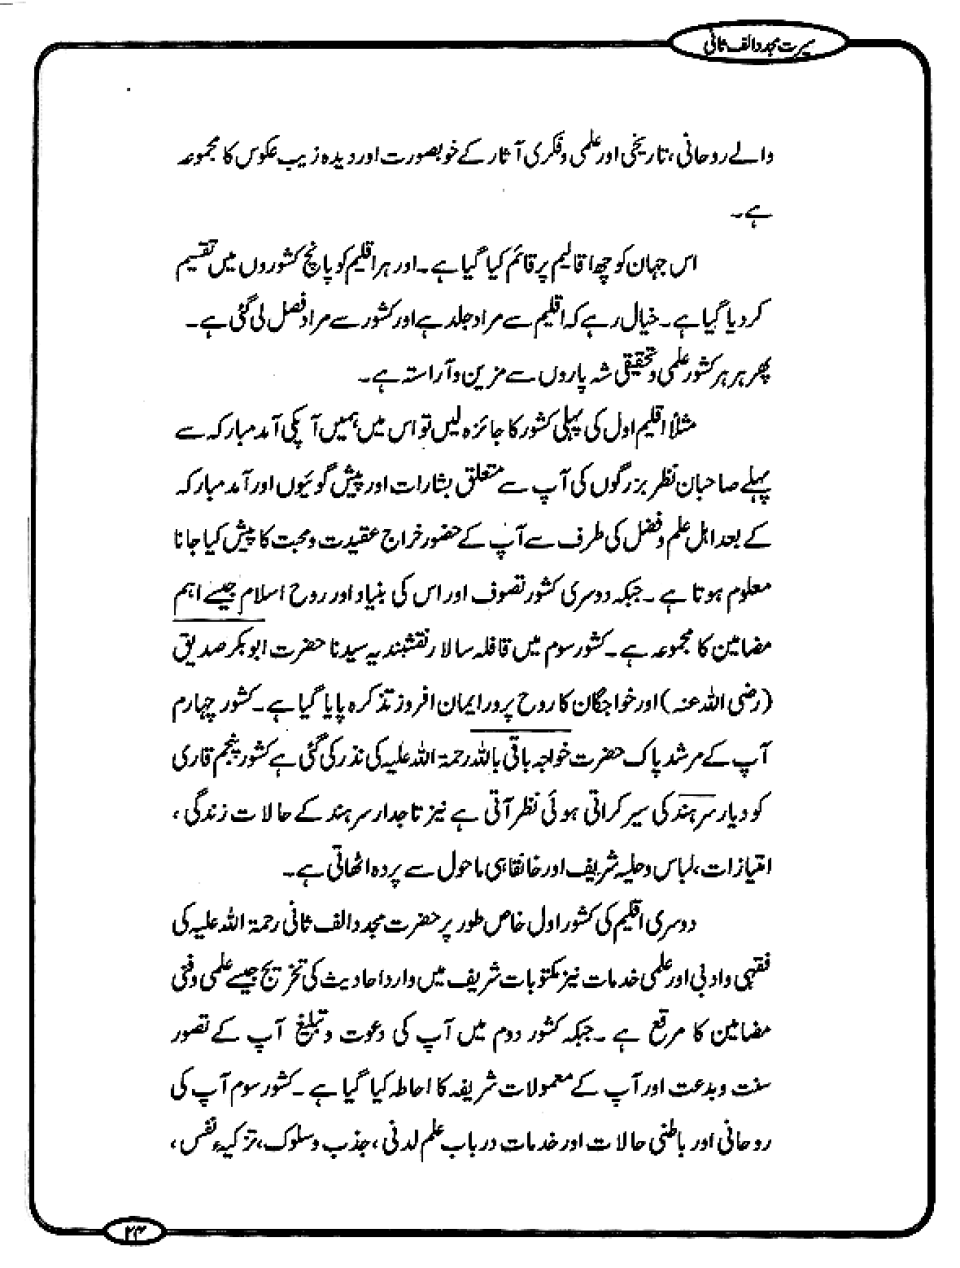 سیرت مجدد الف ثانی
والے روحانی، تاریخی اور علمی و فکری آثار کے خوبصورت اور دیدہ زیب عکوس کا مجموعہ
ہے۔
اس جہان کو چھ اقالیم پر قائم کیا گیا ہے۔ اور ہر اقلیم کو پانچ کشوروں میں تقسیم
کر دیا گیا ہے۔ خیال رہے کہ اقلیم سے مراد جلد ہے اور کشور سے مراد فصل لی گئی ہے۔
پھر ہر ہر کشور علمی و تحقیقی شہ پاروں سے مزین و آراستہ ہے۔
مثلاً اقلیم اول کی پہلی کشور کا جائزہ لیں تو اس میں ہمیں آپکی آمد مبارکہ سے
پہلے صاحبان نظر بزرگوں کی آپ سے متعلق بشارات اور پیش گوئیوں اور آمد مبارکہ
کے بعد اہل علم و فضل کی طرف سے آپ کے حضور خراج عقیدت و محبت کا پیش کیا جانا
معلوم ہوتا ہے۔ جبکہ دوسری کشور تصوف اور اس کی بنیاد اور روح اسلام جیسے اہم
مضامین کا مجموعہ ہے۔ کشور سوم میں قافلہ سالار نقشبندیہ سیدنا حضرت ابوبکر صدیق
(رضی اللہ عنہ) اور خواجگان کا روح پرور ایمان افروز تذکرہ پایا گیا ہے۔ کشور چہارم
آپ کے مرشد پاک حضرت خواجہ باقی باللہ رحمۃ اللہ علیہ کی نذر کی گئی ہے کشور پنجم قاری
کو دیار سرہند کی سیر کراتی ہوئی نظر آتی ہے نیز تاجدار سرہند کے حالات زندگی،
امتیازات، لباس و حلیہ شریف اور خانقاہی ماحول سے پردہ اٹھاتی ہے۔
دوسری اقلیم کی کشور اول خاص طور پر حضرت مجدد الف ثانی رحمۃ اللہ علیہ کی
فقہی و ادبی اور علمی خدمات نیز مکتوبات شریف میں وارد احادیث کی تخریج جیسے علمی و فنی
مضامین کا مرقع ہے۔ جبکہ کشور دوم میں آپ کی دعوت و تبلیغ آپ کے تصور
سنت و بدعت اور آپ کے معمولات شریفہ کا احاطہ کیا گیا ہے۔ کشور سوم آپ کی
روحانی اور باطنی حالات اور خدمات در باب علم لدنی، جذب و سلوک، تزکیہء نفس،
۲۴